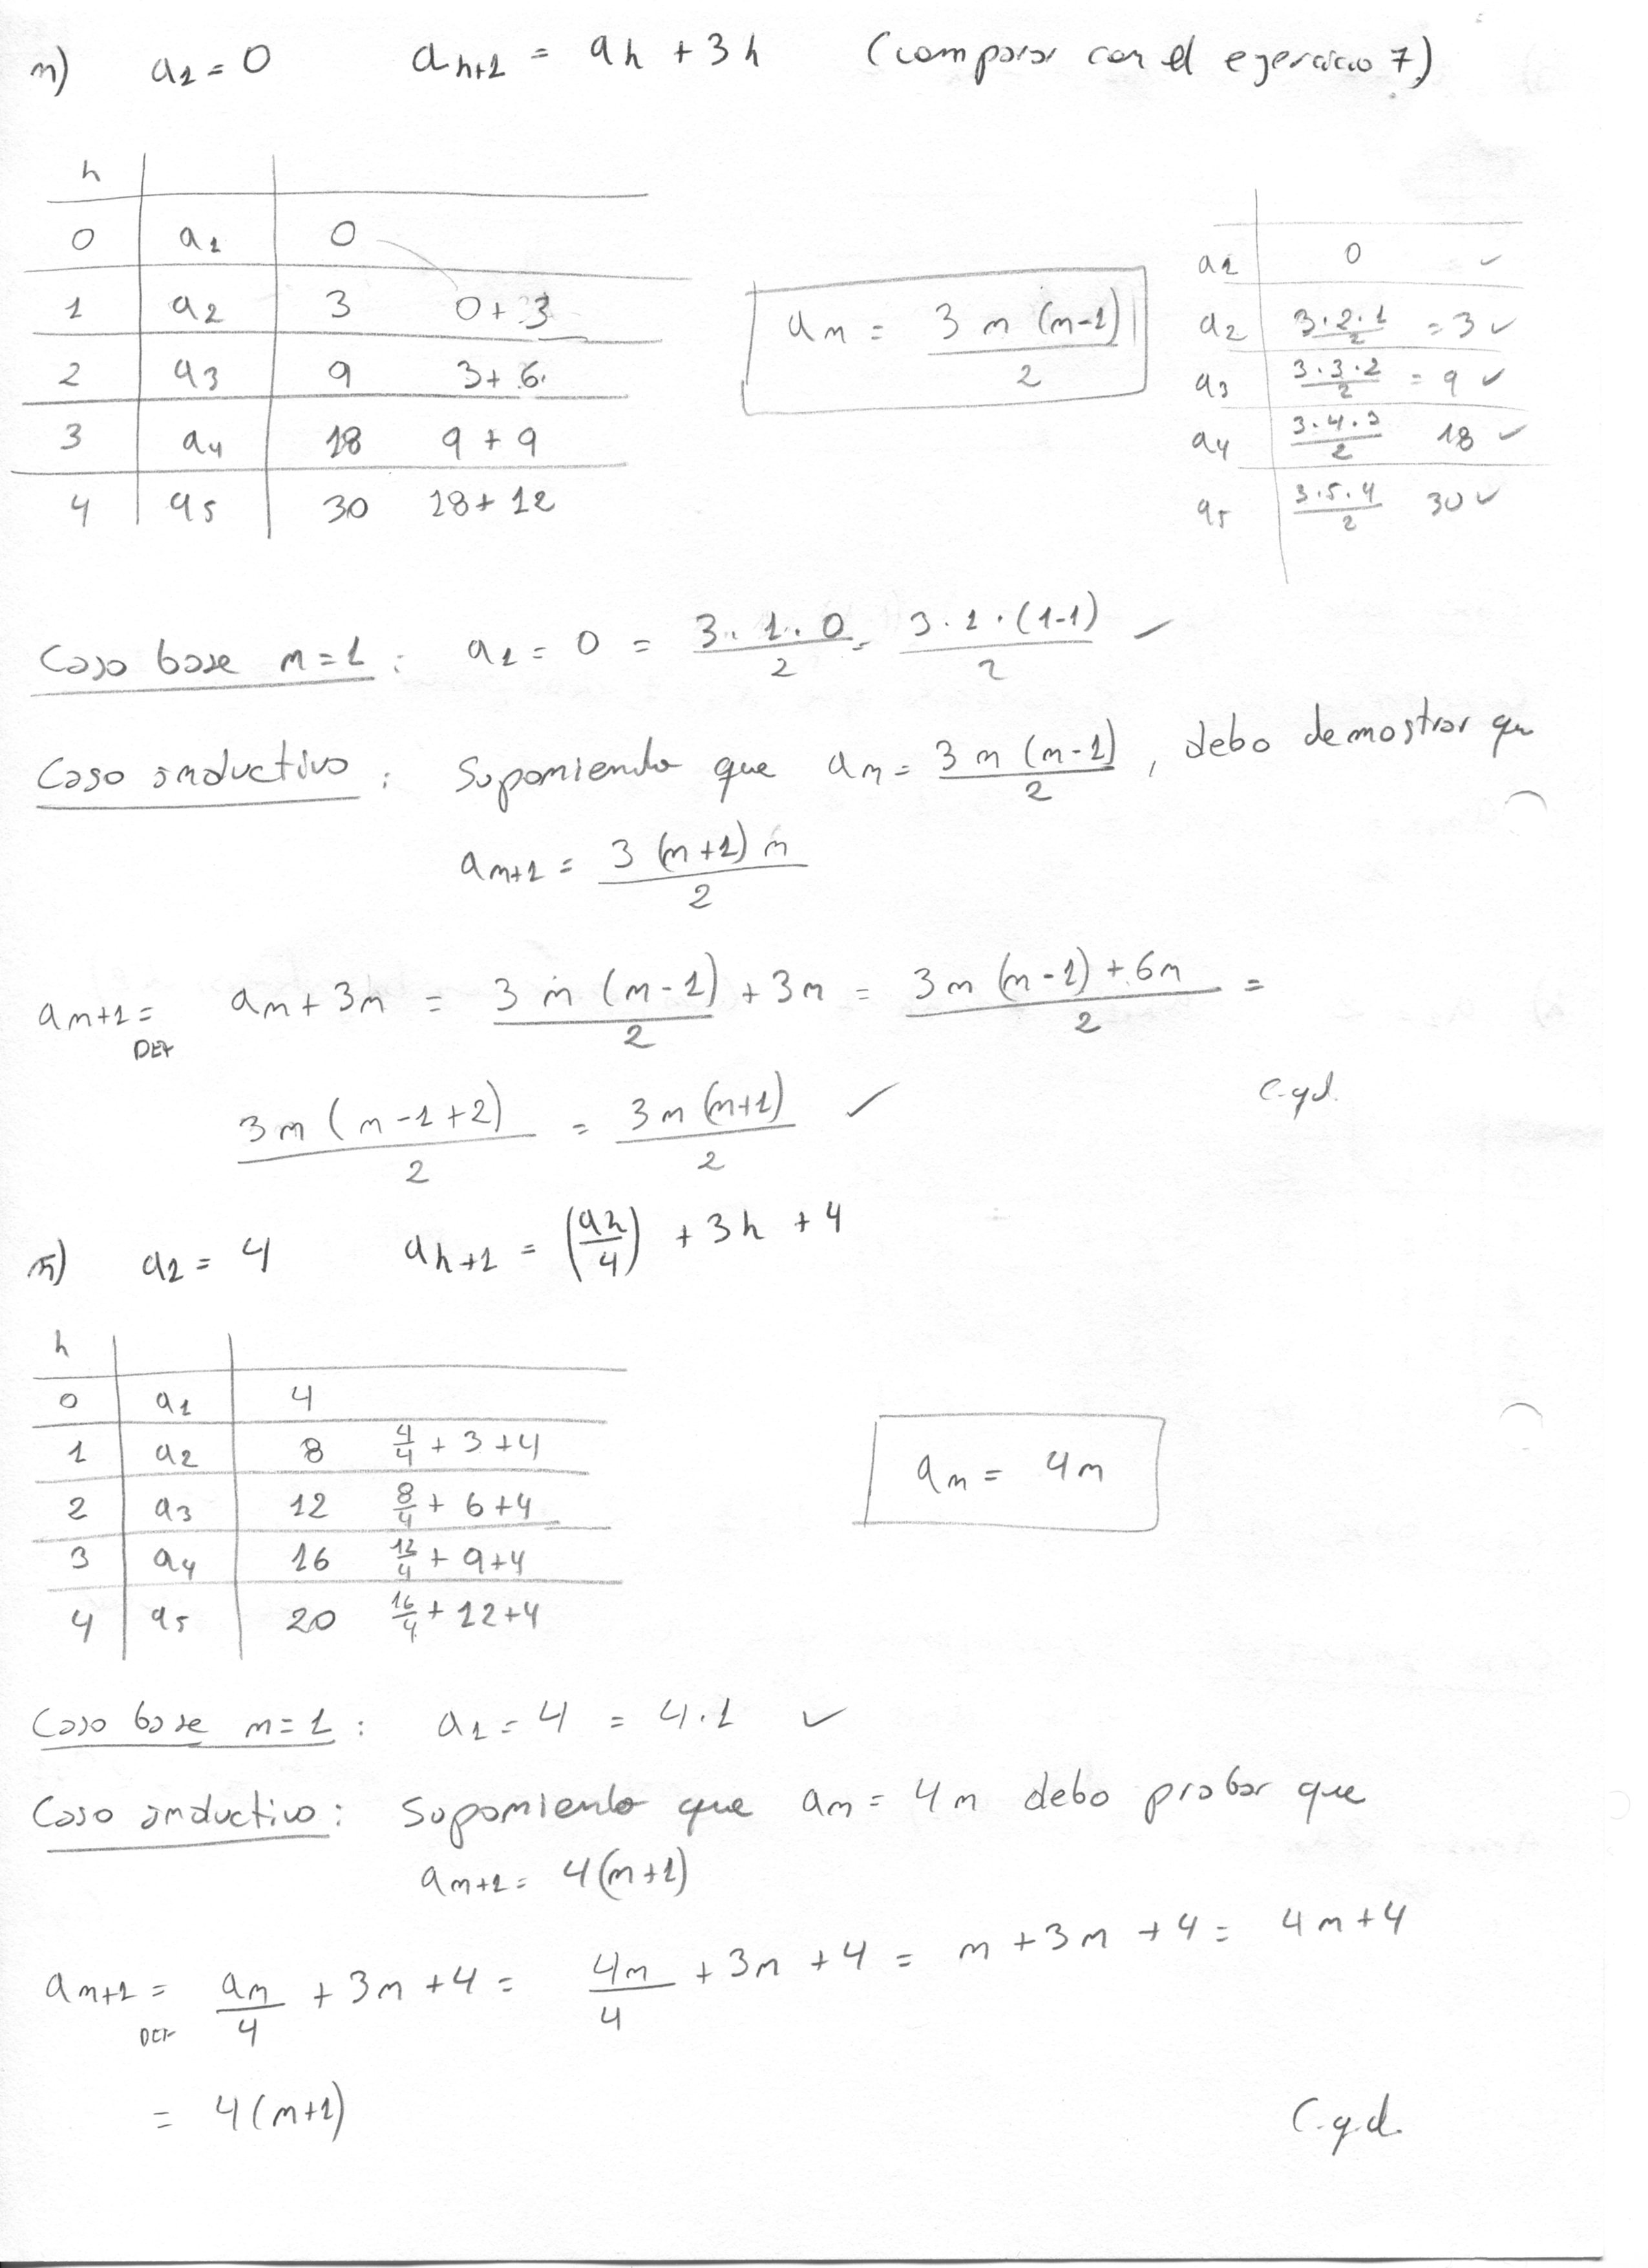 n) a1 = 0 ah+1 = ah + 3h (comparar con el ejercicio 7)
h
0 a1 0
1 a2 3 0+3
2 a3 9 3+6
3 a4 18 9+9
4 a5 30 18+12
an = 3n(n-1)/2
a1 0 ✓
a2 3·2·1/2 = 3 ✓
a3 3·3·2/2 = 9 ✓
a4 3·4·3/2 18 ✓
a5 3·5·4/2 30 ✓
Caso base n=1: a1 = 0 = 3·1·0/2 = 3·1·(1-1)/2 ✓
Caso inductivo: Suponiendo que an = 3n(n-1)/2, debo demostrar que
an+1 = 3(n+1)n/2
an+1 = DEF an + 3n = 3n(n-1)/2 + 3n = 3n(n-1)+6n/2 =
3n(n-1+2)/2 = 3n(n+1)/2 ✓ c.q.d.
ñ) a1 = 4 ah+1 = (ah/4) + 3h + 4
h
0 a1 4
1 a2 8 4/4 + 3 + 4
2 a3 12 8/4 + 6 + 4
3 a4 16 12/4 + 9 + 4
4 a5 20 16/4 + 12 + 4
an = 4n
Caso base n=1: a1 = 4 = 4·1 ✓
Caso inductivo: Suponiendo que an = 4n debo probar que
an+1 = 4(n+1)
an+1 = DEF an/4 + 3n + 4 = 4n/4 + 3n + 4 = n + 3n + 4 = 4n + 4
= 4(n+1) C.q.d.